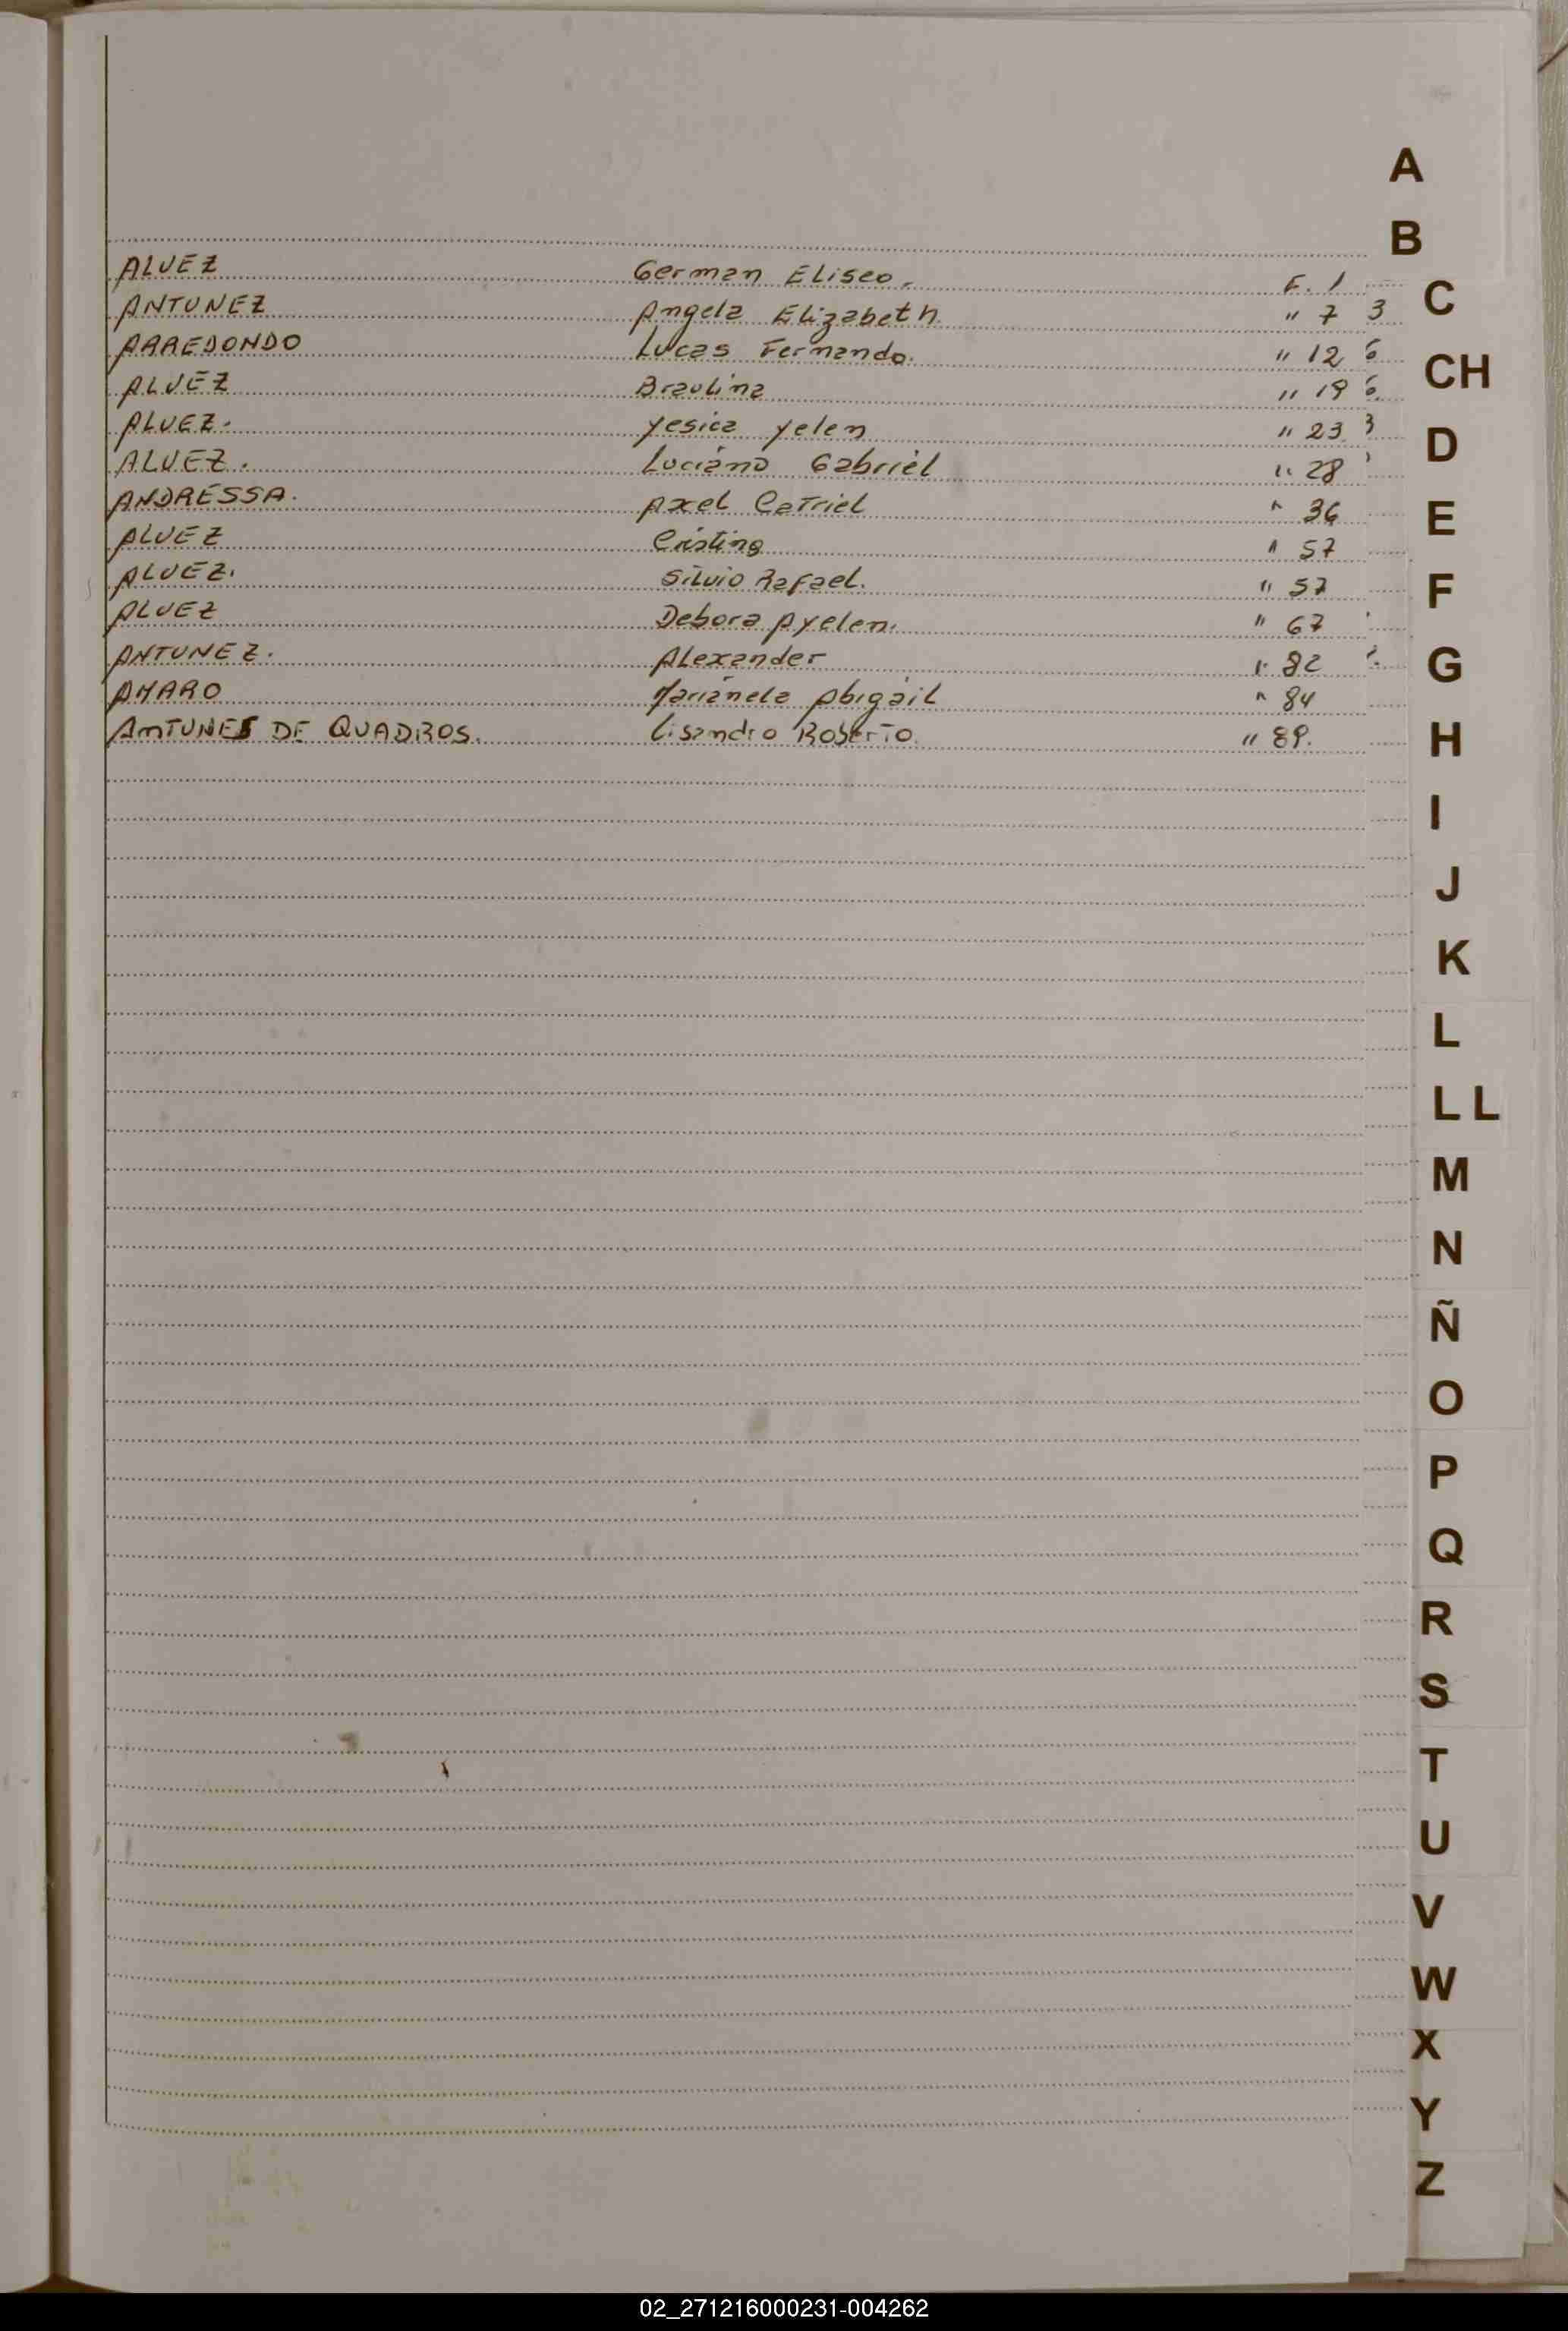 A
B
ALVEZ German Eliseo. F. 1
ANTUNEZ Angela Elizabeth. " 7 3
C
ARREDONDO Lucas Fernando. " 12 6
ALVEZ Braulina " 19 6.
CH
ALVEZ. Yesica Yelen " 23 3
D
ALVEZ. Luciano Gabriel " 28
ANDRESSA. Axel Catriel " 36
E
ALVEZ Cristina " 57
ALVEZ. Silvio Rafael. " 57
F
ALVEZ Debora Ayelen. " 67
ANTUNEZ. Alexander " 82
G
AMARO Marianela Abigail " 84
ANTUNES DE QUADROS. Lisandro Roberto. " 89.
H
I
J
K
L
LL
M
N
Ñ
O
P
Q
R
S
T
U
V
W
X
Y
Z
02_271216000231-004262